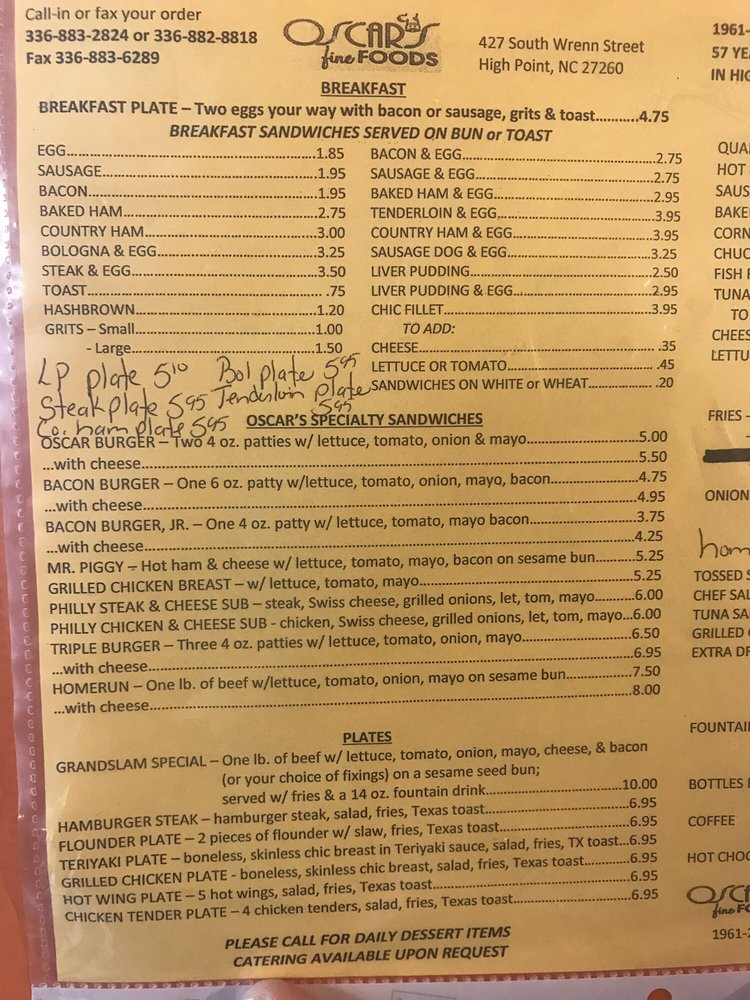 Call-in or fax your order
336-883-2824 or 336-882-8818
Fax 336-883-6289
OSCAR'S
fine FOODS
427 South Wrenn Street
High Point, NC 27260
BREAKFAST
BREAKFAST PLATE – Two eggs your way with bacon or sausage, grits & toast...........4.75
BREAKFAST SANDWICHES SERVED ON BUN or TOAST
EGG...1.85
SAUSAGE...1.95
BACON...1.95
BAKED HAM...2.75
COUNTRY HAM...3.00
BOLOGNA & EGG...3.25
STEAK & EGG...3.50
TOAST... .75
HASHBROWN...1.20
GRITS – Small...1.00
- Large...1.50
BACON & EGG...2.75
SAUSAGE & EGG...2.75
BAKED HAM & EGG...2.95
TENDERLOIN & EGG...3.95
COUNTRY HAM & EGG...3.95
SAUSAGE DOG & EGG...3.25
LIVER PUDDING...2.50
LIVER PUDDING & EGG...2.95
CHIC FILLET...3.95
TO ADD:
CHEESE... .35
LETTUCE OR TOMATO... .45
SANDWICHES ON WHITE or WHEAT... .20
LP plate 5 10 Bol plate 5 95
Steak plate 5 95 Tenderloin plate 5 95
Co. ham plate 5 95
OSCAR'S SPECIALTY SANDWICHES
OSCAR BURGER – Two 4 oz. patties w/ lettuce, tomato, onion & mayo...5.00
...with cheese...5.50
BACON BURGER – One 6 oz. patty w/lettuce, tomato, onion, mayo, bacon...4.75
...with cheese...4.95
BACON BURGER, JR. – One 4 oz. patty w/ lettuce, tomato, mayo bacon...3.75
...with cheese...4.25
MR. PIGGY – Hot ham & cheese w/ lettuce, tomato, mayo, bacon on sesame bun...5.25
GRILLED CHICKEN BREAST – w/ lettuce, tomato, mayo...5.25
PHILLY STEAK & CHEESE SUB – steak, Swiss cheese, grilled onions, let, tom, mayo...6.00
PHILLY CHICKEN & CHEESE SUB - chicken, Swiss cheese, grilled onions, let, tom, mayo...6.00
TRIPLE BURGER – Three 4 oz. patties w/ lettuce, tomato, onion, mayo...6.50
...with cheese...6.95
HOMERUN – One lb. of beef w/lettuce, tomato, onion, mayo on sesame bun...7.50
...with cheese...8.00
PLATES
GRANDSLAM SPECIAL – One lb. of beef w/ lettuce, tomato, onion, mayo, cheese, & bacon
(or your choice of fixings) on a sesame seed bun;
served w/ fries & a 14 oz. fountain drink...10.00
HAMBURGER STEAK – hamburger steak, salad, fries, Texas toast...6.95
FLOUNDER PLATE – 2 pieces of flounder w/ slaw, fries, Texas toast...6.95
TERIYAKI PLATE – boneless, skinless chic breast in Teriyaki sauce, salad, fries, TX toast...6.95
GRILLED CHICKEN PLATE - boneless, skinless chic breast, salad, fries, Texas toast...6.95
HOT WING PLATE – 5 hot wings, salad, fries, Texas toast...6.95
CHICKEN TENDER PLATE – 4 chicken tenders, salad, fries, Texas toast...6.95
PLEASE CALL FOR DAILY DESSERT ITEMS
CATERING AVAILABLE UPON REQUEST
1961-
57 YE
IN HI
QUA
HOT
SAUS
BAKE
CORN
CHUC
FISH
TUNA
TO
CHEES
LETTU
FRIES –
ONION
hom
TOSSED S
CHEF SAL
TUNA SA
GRILLED
EXTRA DR
FOUNTAI
BOTTLES
COFFEE
HOT CHOC
OSCA
fine FO
1961-2